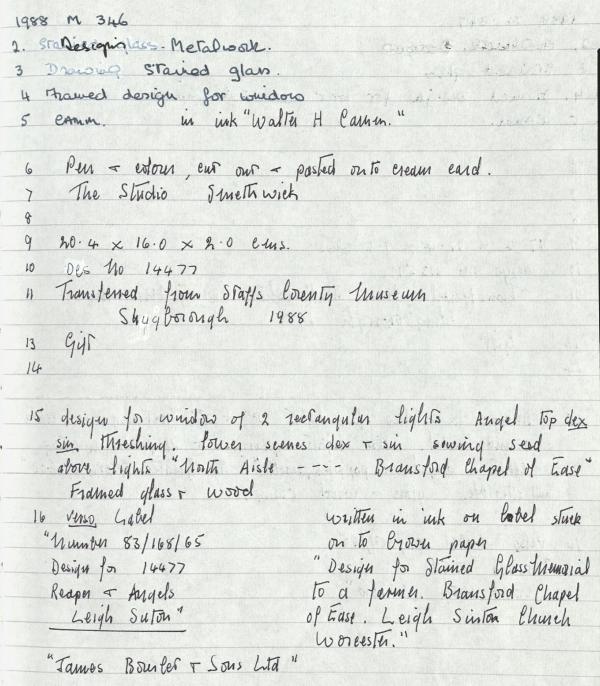 1988 M 346
2. Designs Metalwork.
3 Drawing Stained glass.
4 Framed design for window
5 CAMM. in ink "Walter H Camm."
6 Pen + colour, cut out + pasted onto cream card.
7 The Studio Smethwick
8
9 20.4 x 16.0 x 2.0 cms.
10 Des No 14477
11 Transferred from Staffs County Museum
Shugborough 1988
13 Gift
14
15 design for window of 2 rectangular lights Angel top dex
sin threshing. Lower scenes dex + sin sowing seed
above lights "North Aisle ---- Bransford Chapel of Ease"
Framed glass + wood
16 verso Label
"Number 83/168/65
Design for 14477
Reaper + Angels
Leigh Suton"
"James Bourlet + Sons Ltd"
written in ink on label stuck
on to brown paper
"Design for Stained Glass Memorial
to a farmer. Bransford Chapel
of Ease. Leigh Sinton Church
Worcester."